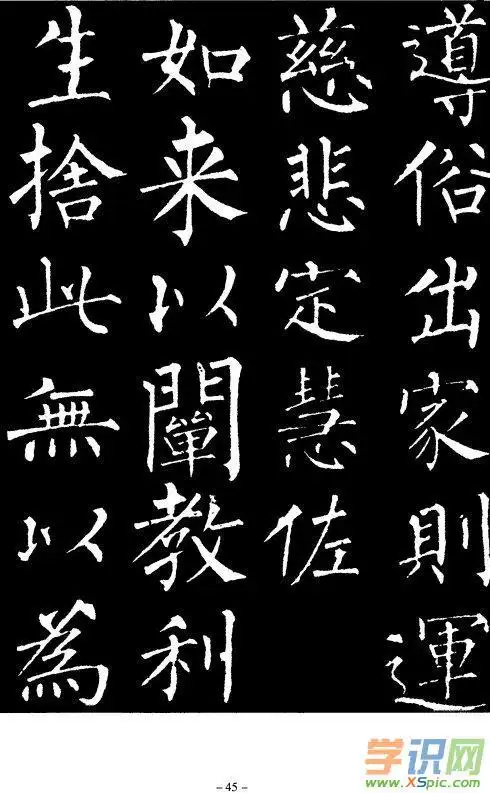 導俗出家則運
慈悲定慧佐
如来以闡教利
生捨此無以為
- 45 -
学识网
www.XSpic.com